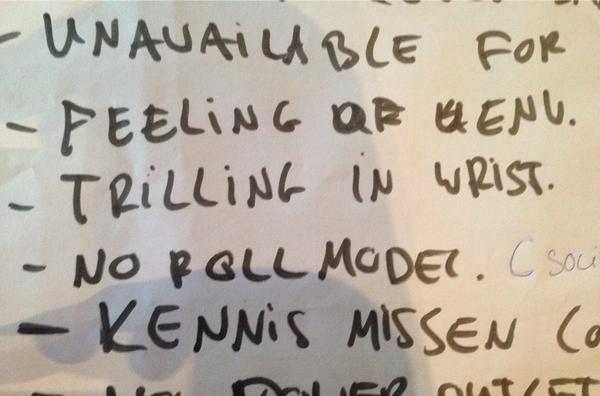 - UNAVAILABLE FOR
- FEELING OF ENV.
- TRILLING IN WRIST.
- NO ROLLMODEL. (soci
- KENNIS MISSEN (o
POWER OUTLET